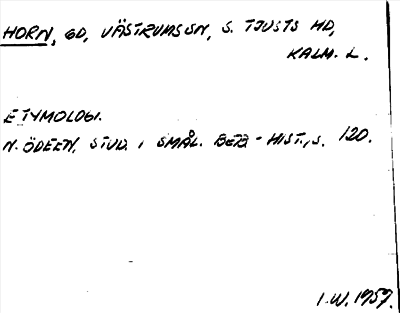 HORN, GD, VÄSTRUMS SN, S. TJUSTS HD,
KALM. L.
ETYMOLOGI.
N. ÖDEEN, STUD. I SMÅL. BEB-HIST., S. 120.
I.W. 1959.